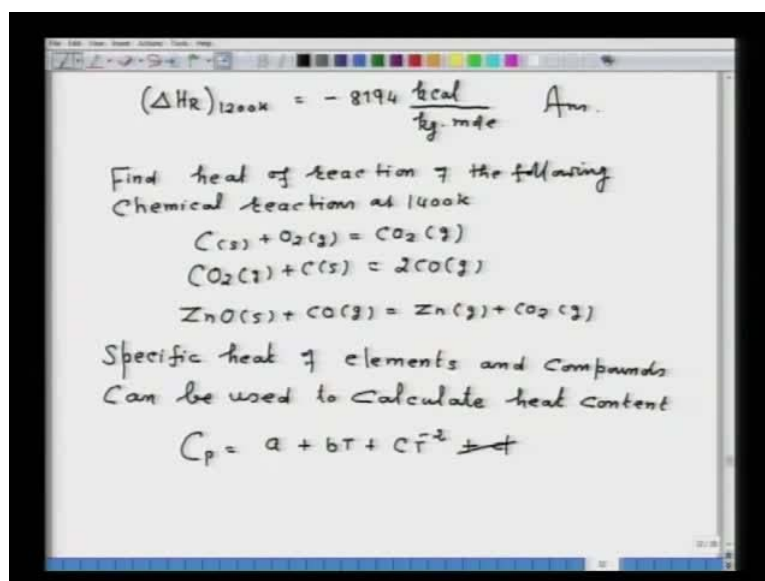 (ΔHR)1200K = - 8194 kcal / kg.mole Ans.
Find heat of reaction of the following
Chemical reactions at 1400K
C(s) + O2(g) = CO2(g)
CO2(g) + C(s) = 2CO(g)
ZnO(s) + CO(g) = Zn(g) + CO2(g)
Specific heat of elements and compounds
Can be used to calculate heat content
Cp = a + bT + CT⁻²